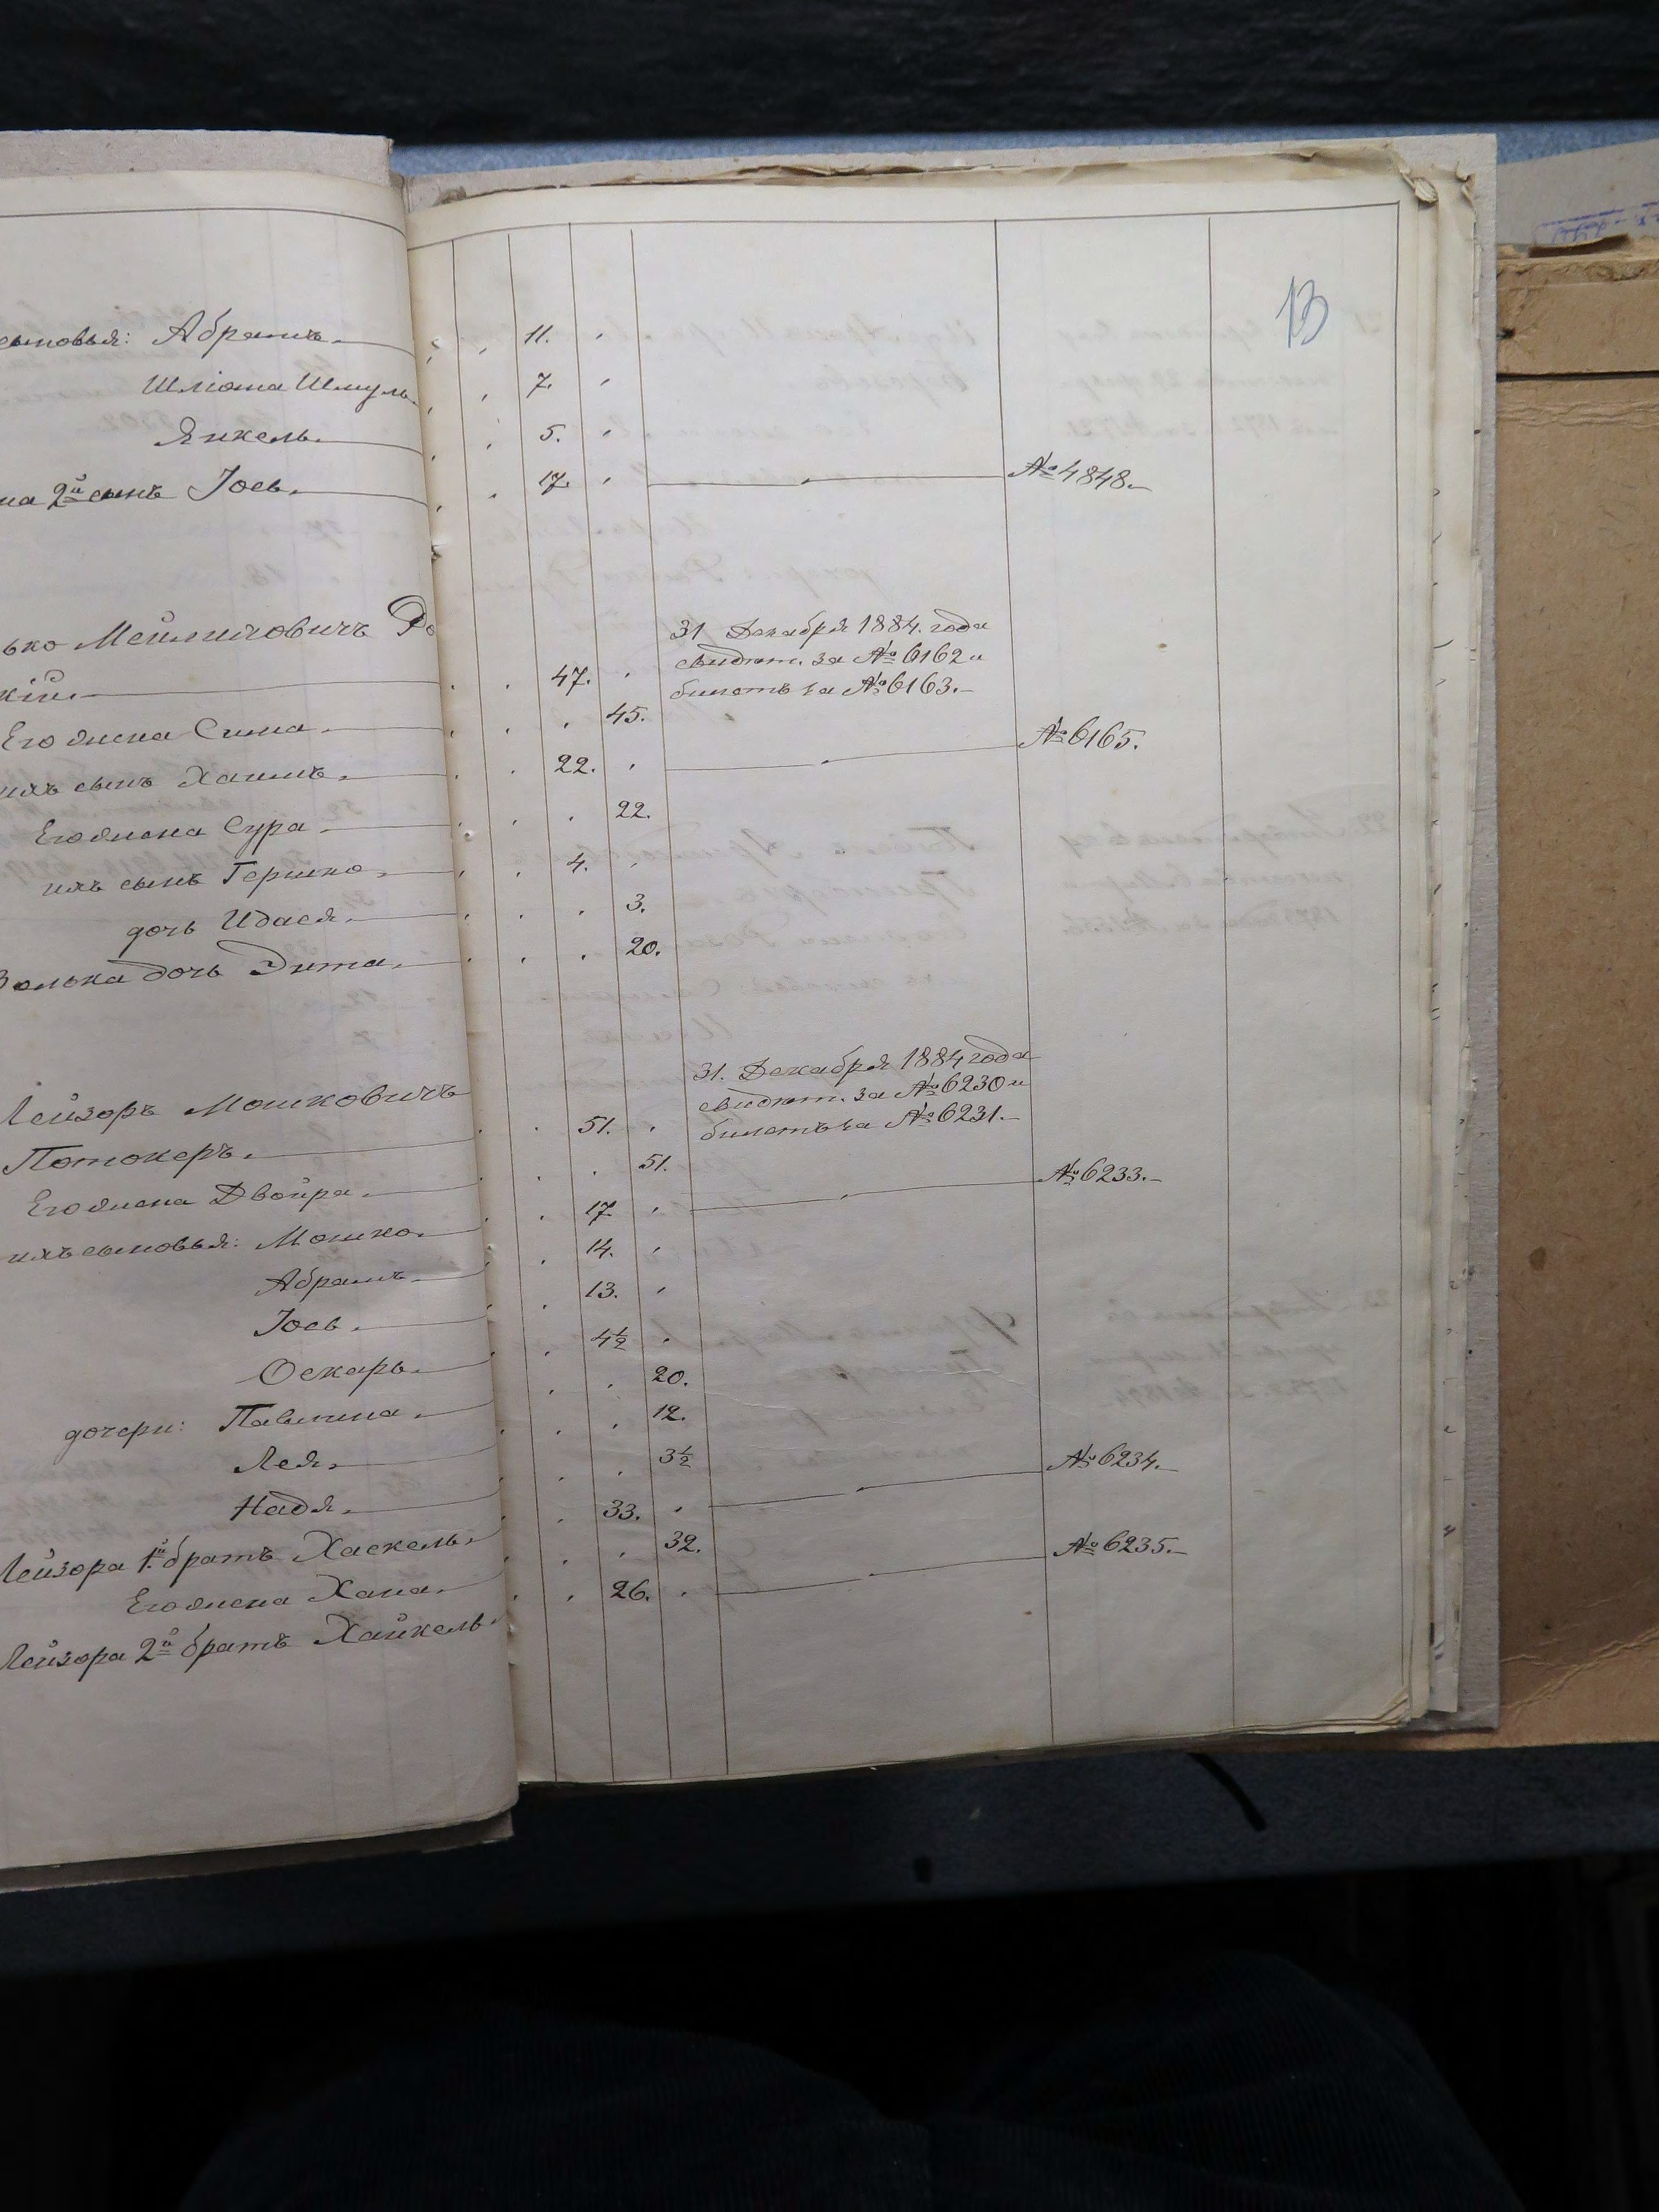 13
сыновья: Абрамъ. 11.
Шліома Шмуль. 7.
Янкель. 5.
на 2й сынъ Іось. 17. № 4848.
ько Мейлиховичъ Ро
кій. 47. 31 Декабря 1884. года
свидѣт. за № 6162 и
билетъ за № 6163.
Его жена Сима. 45.
ихъ сынъ Хаимъ. 22. № 6165.
Его жена Сура. 22.
ихъ сынъ Гершко. 4.
дочь Идася. 3.
Волька дочь Энта. 20.
Лейзоръ Мошковичъ 31. Декабря 1884 года
свидѣт. за № 6230 и
Потокеръ. 51. билетъ за № 6231.
Его жена Двойра. 51.
ихъ сыновья: Мошко. 17. № 6233.
Абрамъ. 14.
Іось. 13.
Оскаръ. 4½
дочери: Павлина. 20.
Лея. 12.
Надя. 3½
Лейзора 1й братъ Хаскель. 33. № 6234.
Его жена Хана. 32.
Лейзора 2й братъ Хайкель. 26. № 6235.